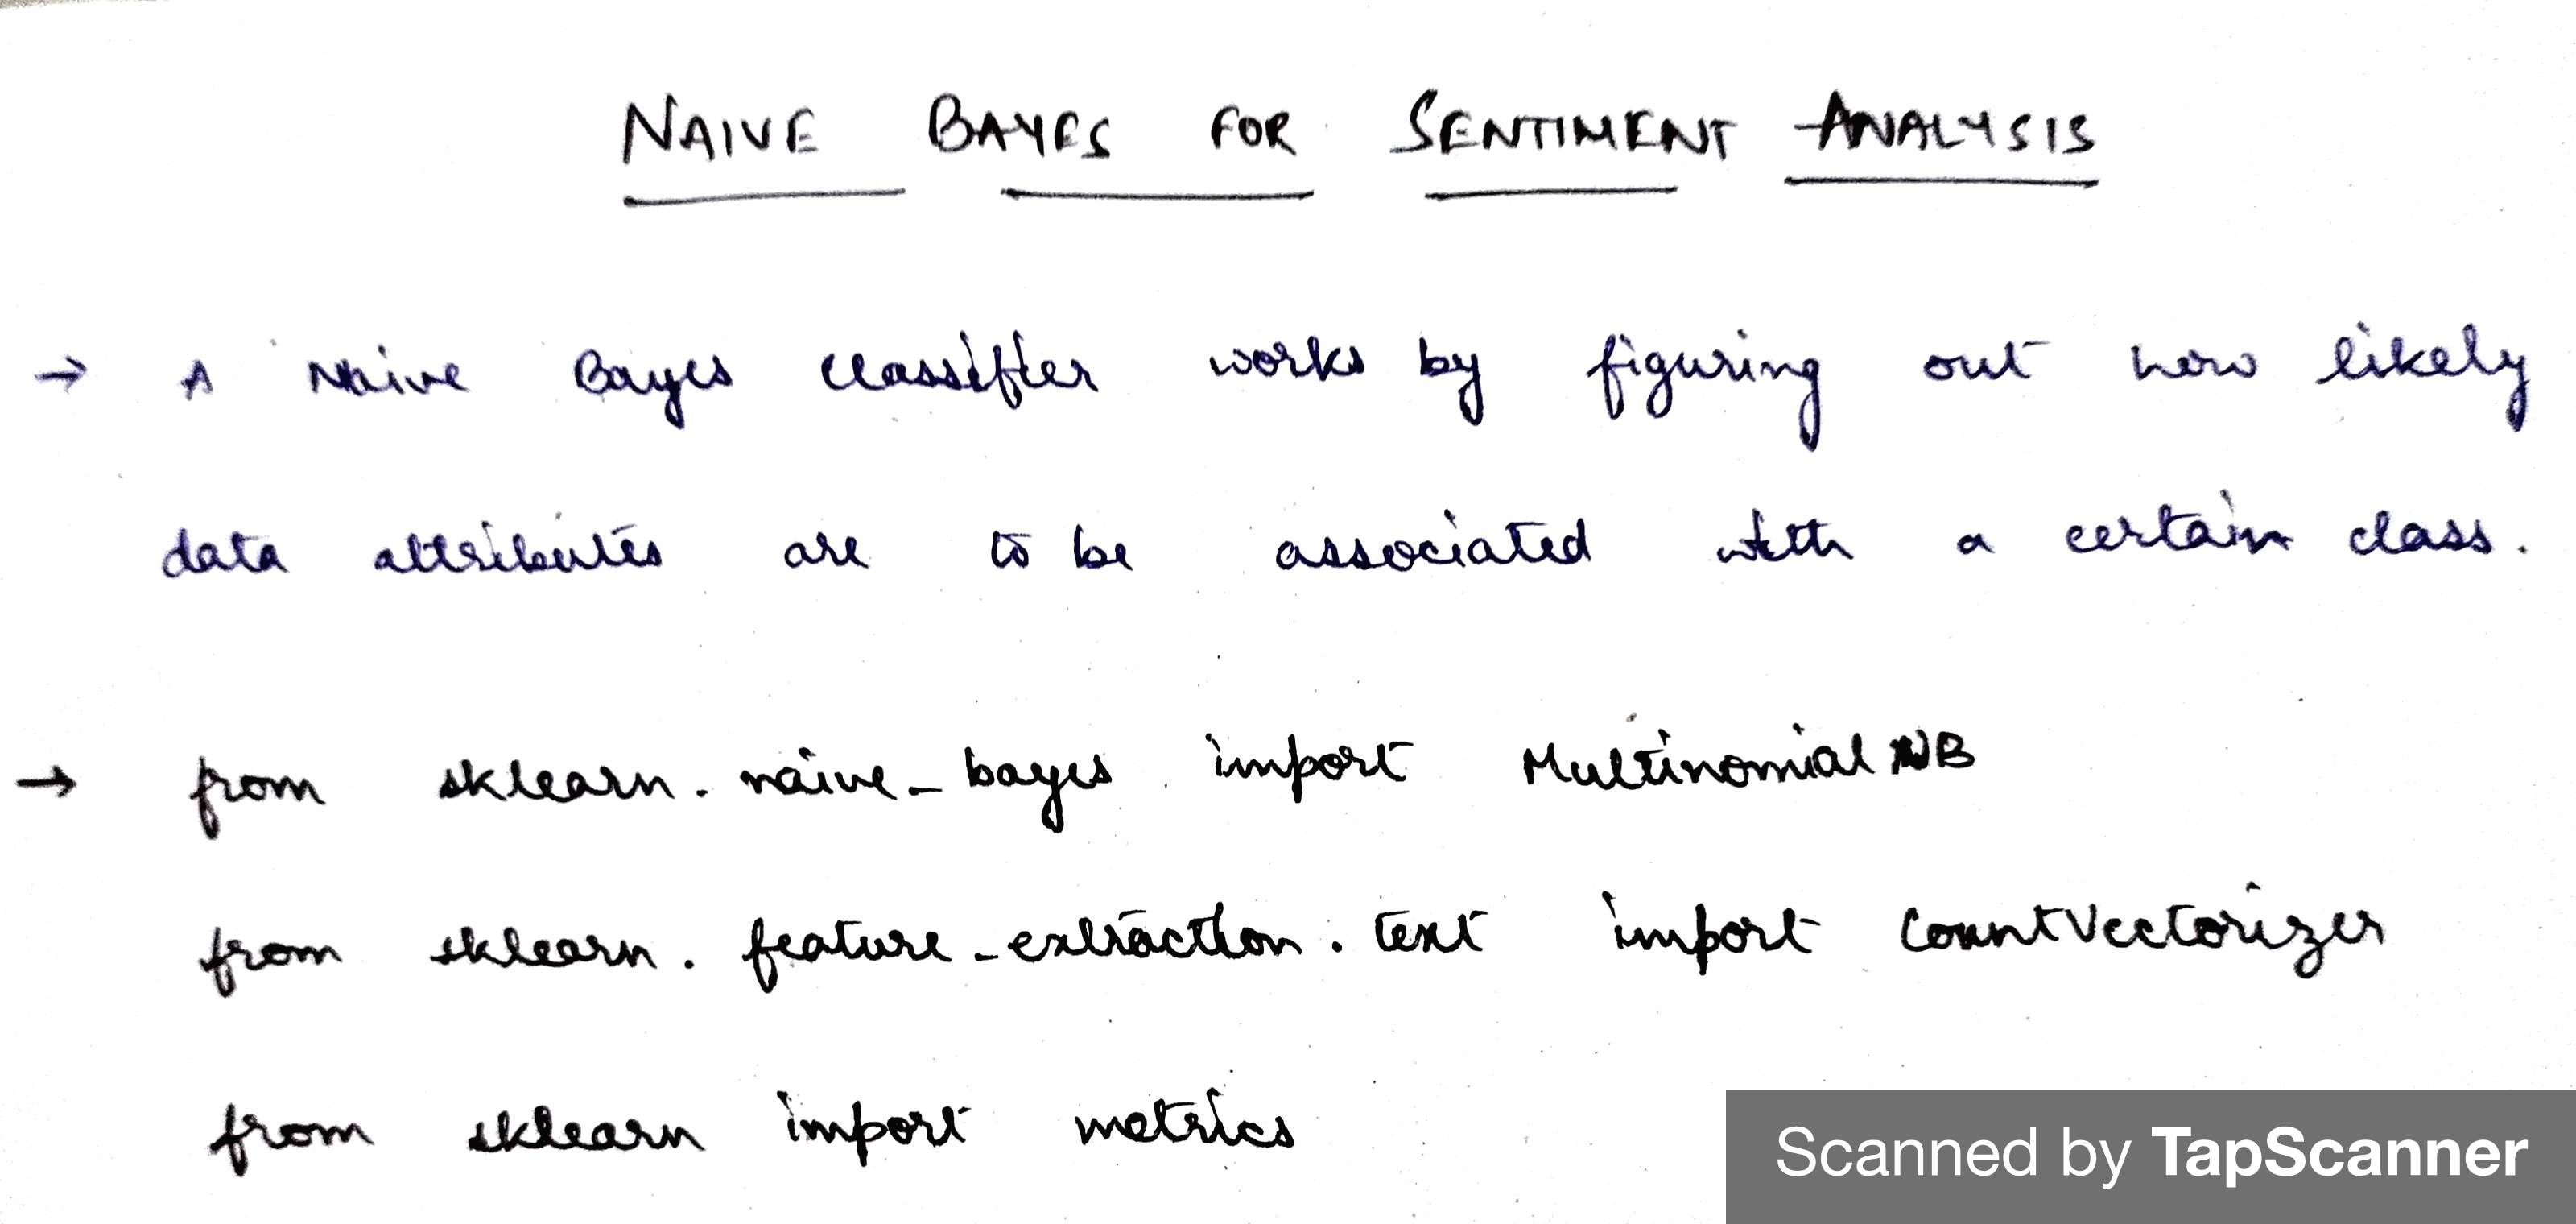 NAIVE BAYES FOR SENTIMENT ANALYSIS
→ A Naive Bayes classifier works by figuring out how likely
data attributes are to be associated with a certain class.
→ from sklearn. naive_bayes import MultinomialNB
from sklearn. feature_extraction. text import CountVectorizer
from sklearn import metrics
Scanned by TapScanner